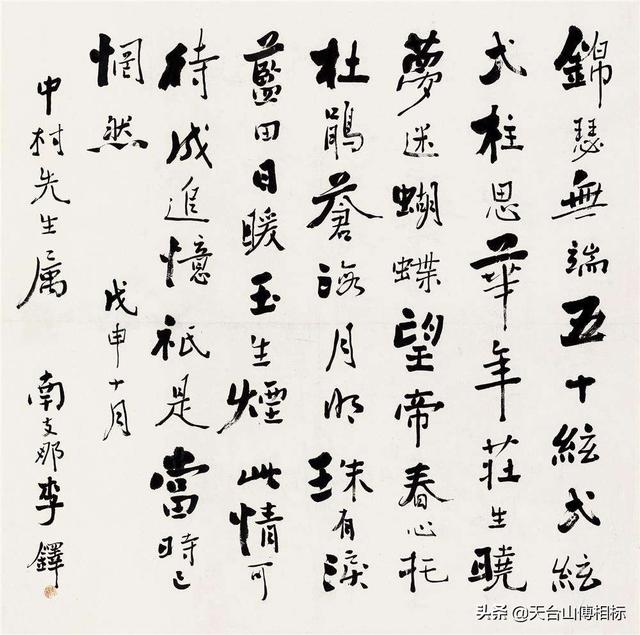 錦瑟無端五十絃弌絃
弌柱思華年莊生曉
夢迷蝴蝶望帝春心托
杜鵑蒼海月明珠有淚
藍田日暖玉生煙此情可
待成追憶祇是當時已
惘然
戊申十月
中村先生属
南支那李鐸
头条 @天台山傅相标